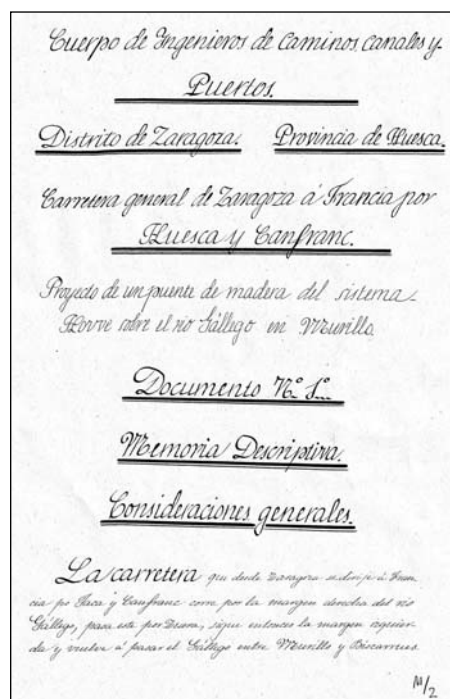 Cuerpo de Ingenieros de Caminos, canales y
Puertos.
Distrito de Zaragoza. Provincia de Huesca.
Carretera general de Zaragoza á Francia por
Huesca y Canfranc.
Proyecto de un puente de madera del sistema
Howe sobre el rio Gállego en Murillo
Documento Nº 1º
Memoria Descriptiva.
Consideraciones generales.
La carretera que desde Zaragoza se dirije á Fran-
cia por Jaca y Canfranc corre por la margen derecha del rio
Gállego, pasa este por sigue entonces la margen izquier-
da y vuelve á pasar el Gállego entre Murillo y Biscarrues
M/2